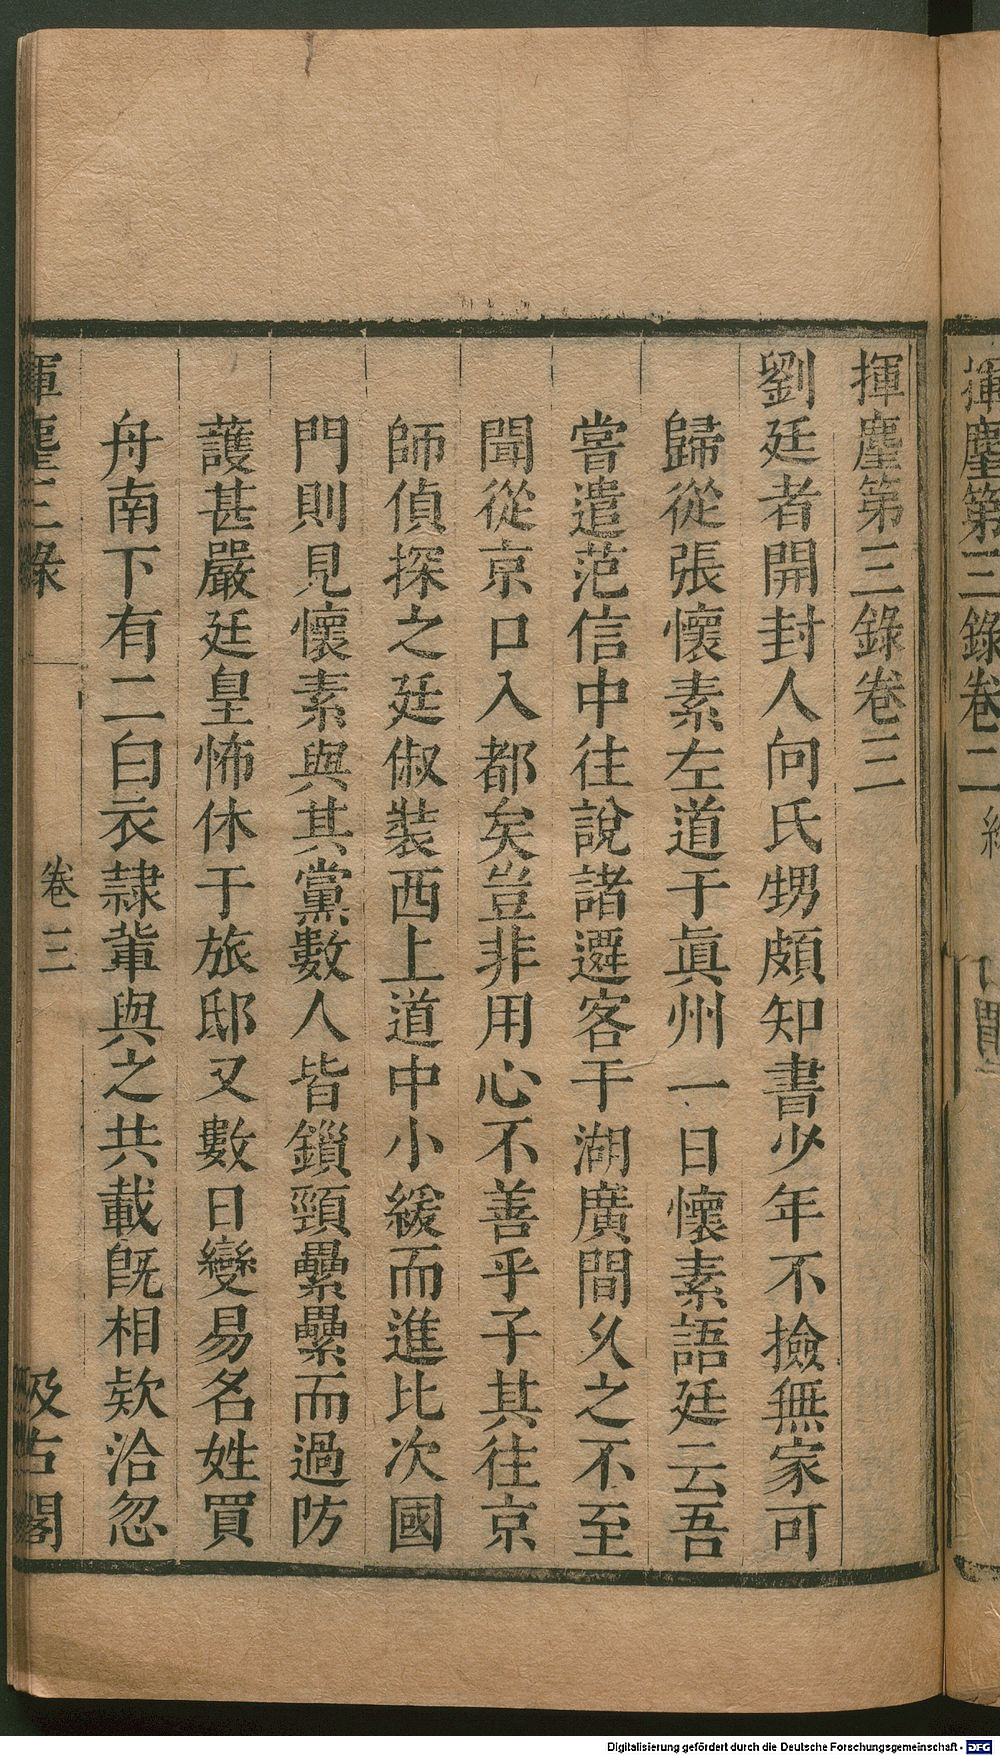 揮麈第三錄卷三
劉廷者開封人向氏甥頗知書少年不撿無家可
歸從張懷素左道于眞州一日懷素語廷云吾
嘗遣范信中往說諸遷客于湖廣間久之不至
聞從京口入都矣豈非用心不善乎子其往京
師偵探之廷俶裝西上道中小緩而進比次國
門則見懷素與其黨數人皆鎖頸纍纍而過防
護甚嚴廷皇怖休于旅邸又數日變易名姓買
舟南下有二白衣隷軰與之共載旣相欵洽忽
揮麈三录 卷三 汲古閣
揮麈第三錄卷二 終
Digitalisierung gefördert durch die Deutsche Forschungsgemeinschaft - DFG